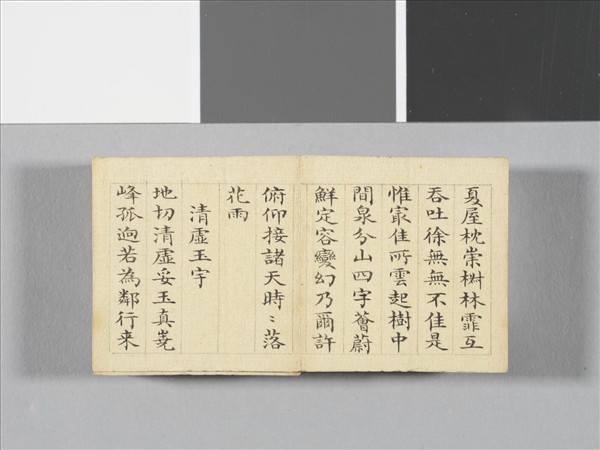 夏屋枕崇樹林霏互
吞吐徐無無不佳是
惟冣佳所雲起樹中
間泉分山四字薈蔚
鮮定容變幻乃爾許
俯仰接諸天時〻落
花雨
清虛玉宇
地切清虛妥玉真嵬
峰孤逈若為鄰行来